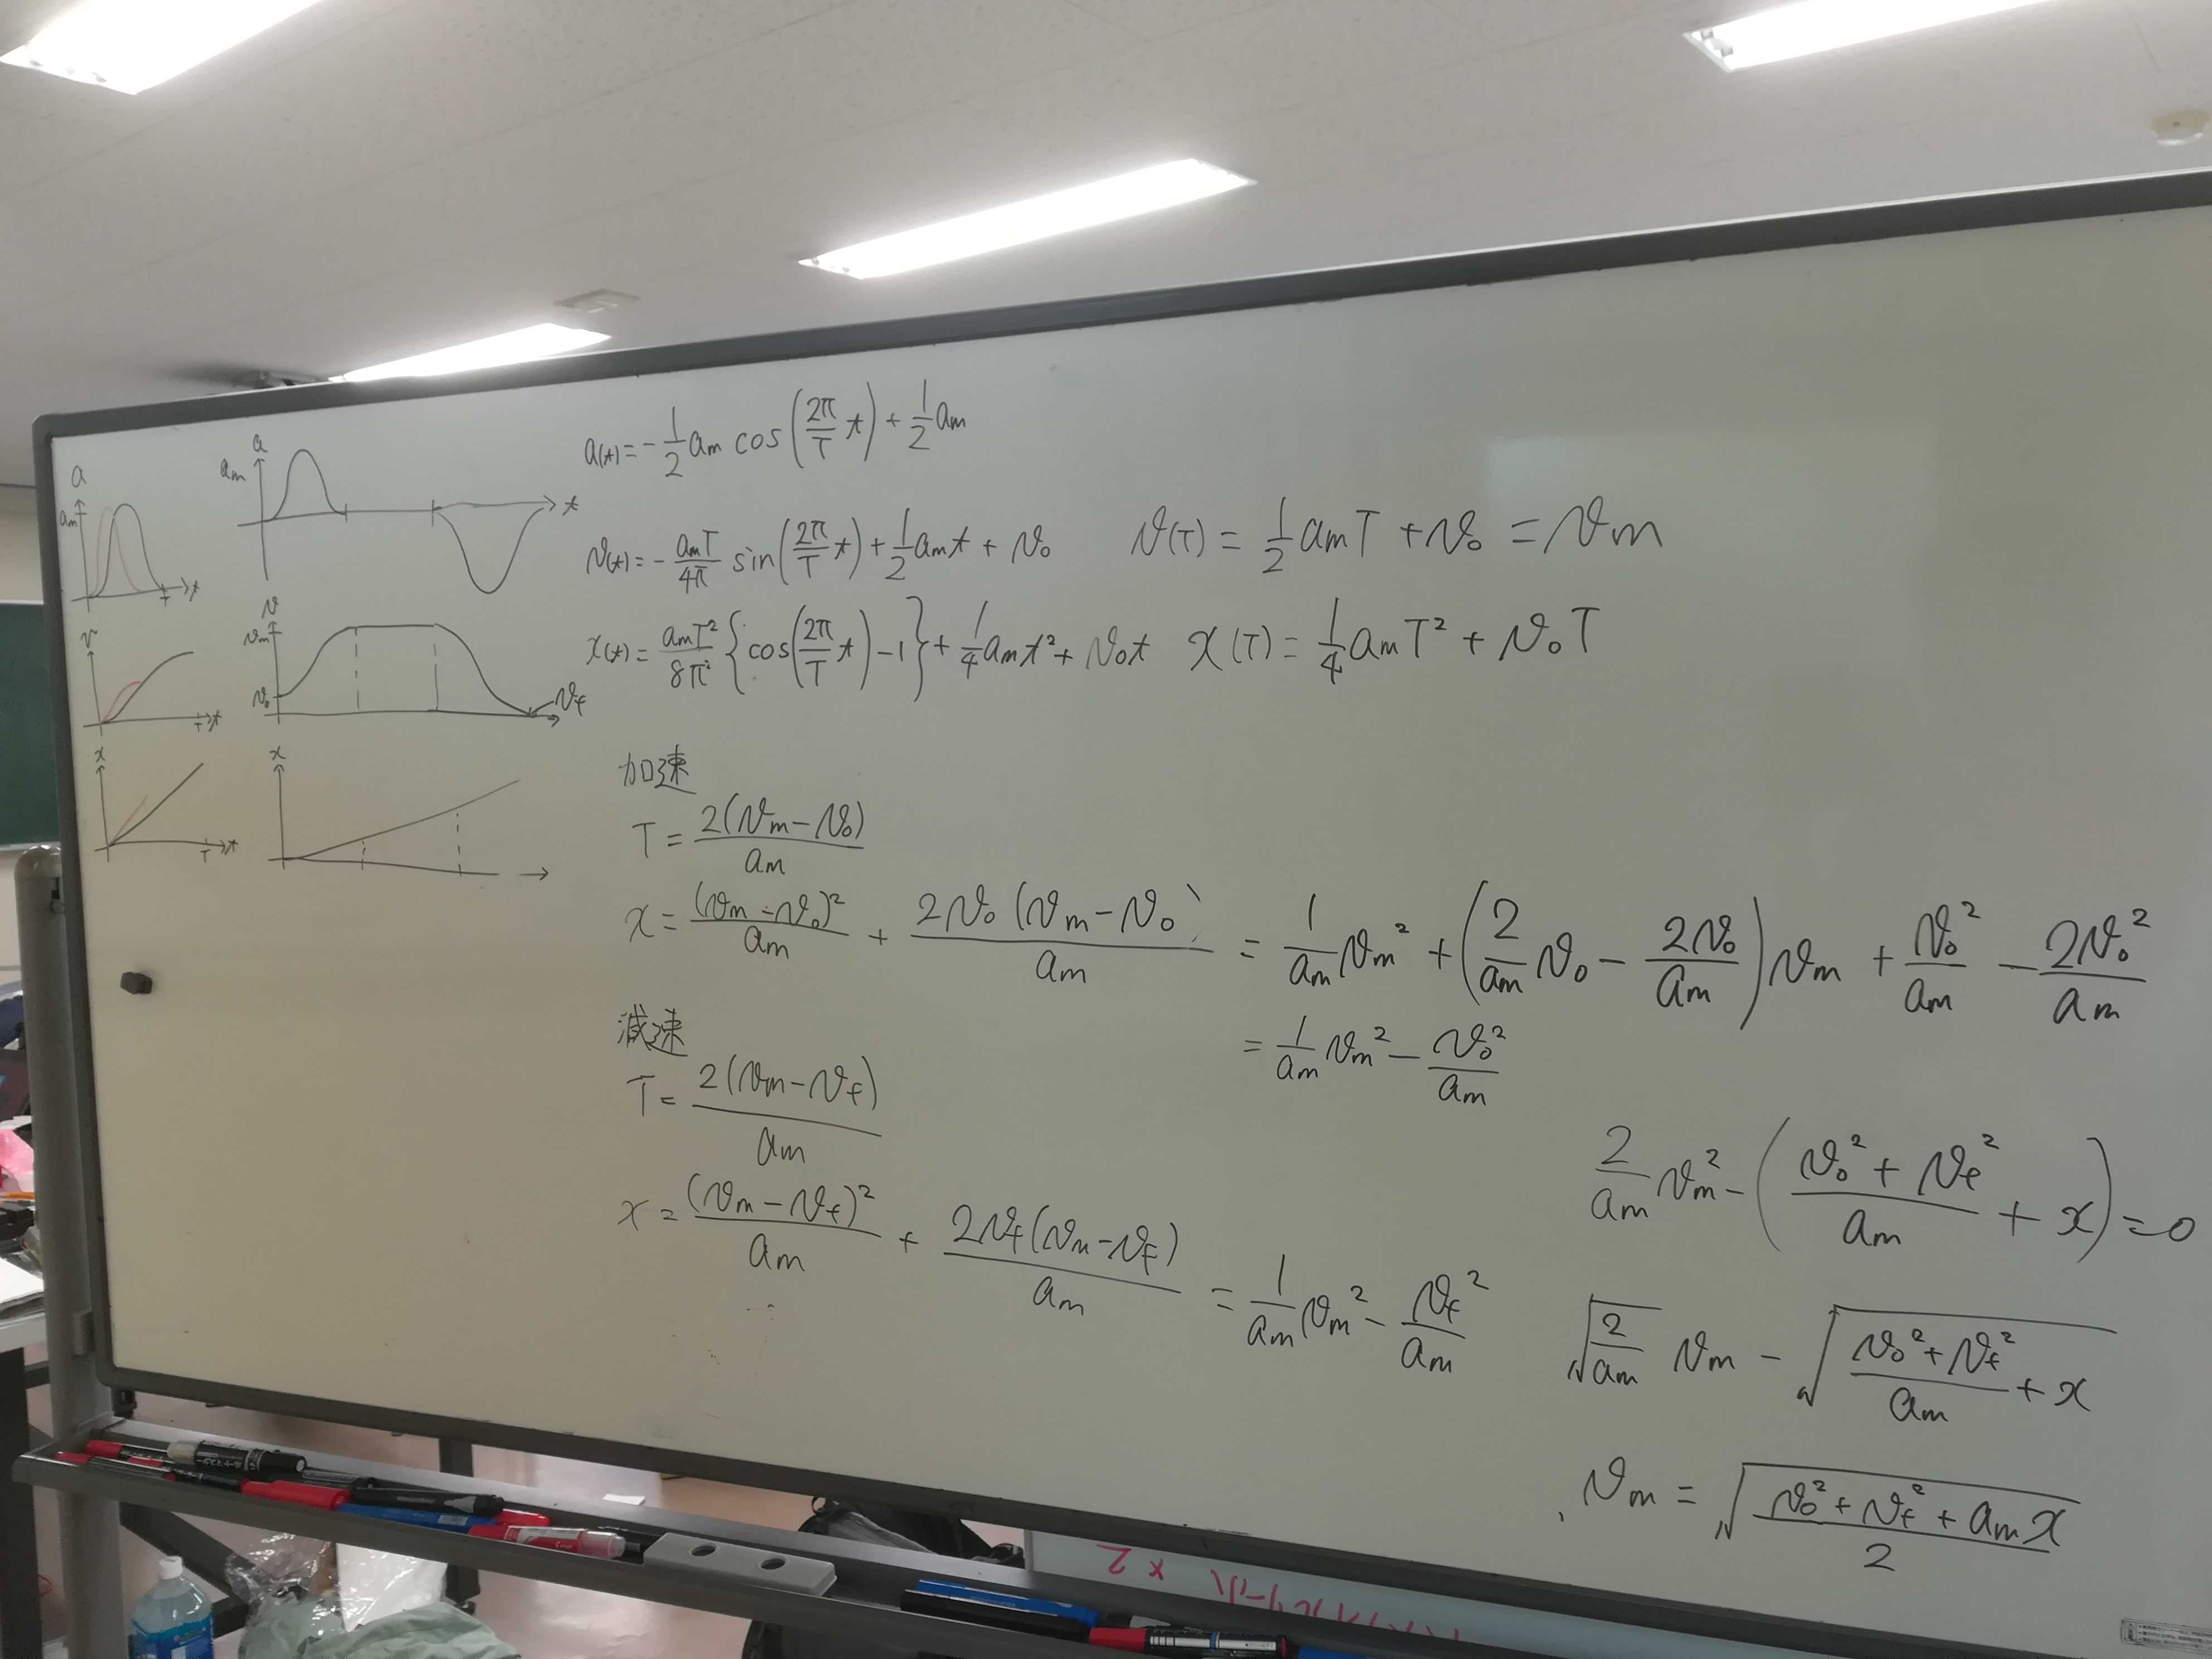 a
a_m
t
T
v
t
T
x
t
T
a
a_m
t
v
v_m
v_0
v_f
x
a(t) = -1/2 a_m cos(2π/T t) + 1/2 a_m
v(t) = -a_mT/4π sin(2π/T t) + 1/2 a_m t + v_0
v(T) = 1/2 a_m T + v_0 = v_m
x(t) = a_mT²/8π² {cos(2π/T t) - 1} + 1/4 a_m t² + v_0 t
x(T) = 1/4 a_m T² + v_0 T
加速
T = 2(v_m - v_0)/a_m
x = (v_m - v_0)²/a_m + 2v_0(v_m - v_0)/a_m = 1/a_m v_m² + (2/a_m v_0 - 2v_0/a_m) v_m + v_0²/a_m - 2v_0²/a_m
= 1/a_m v_m² - v_0²/a_m
減速
T = 2(v_m - v_f)/a_m
x = (v_m - v_f)²/a_m + 2v_f(v_m - v_f)/a_m = 1/a_m v_m² - v_f²/a_m
2/a_m v_m² - ((v_0² + v_f²)/a_m + x) = 0
√(2/a_m) v_m - √((v_0² + v_f²)/a_m + x)
v_m = √((v_0² + v_f² + a_m x)/2)
× 2